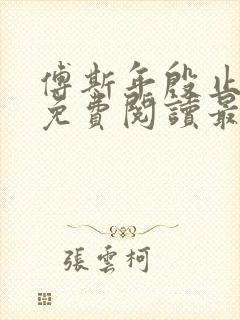 傅斯年殷止
免費閱讀最
張雲柯